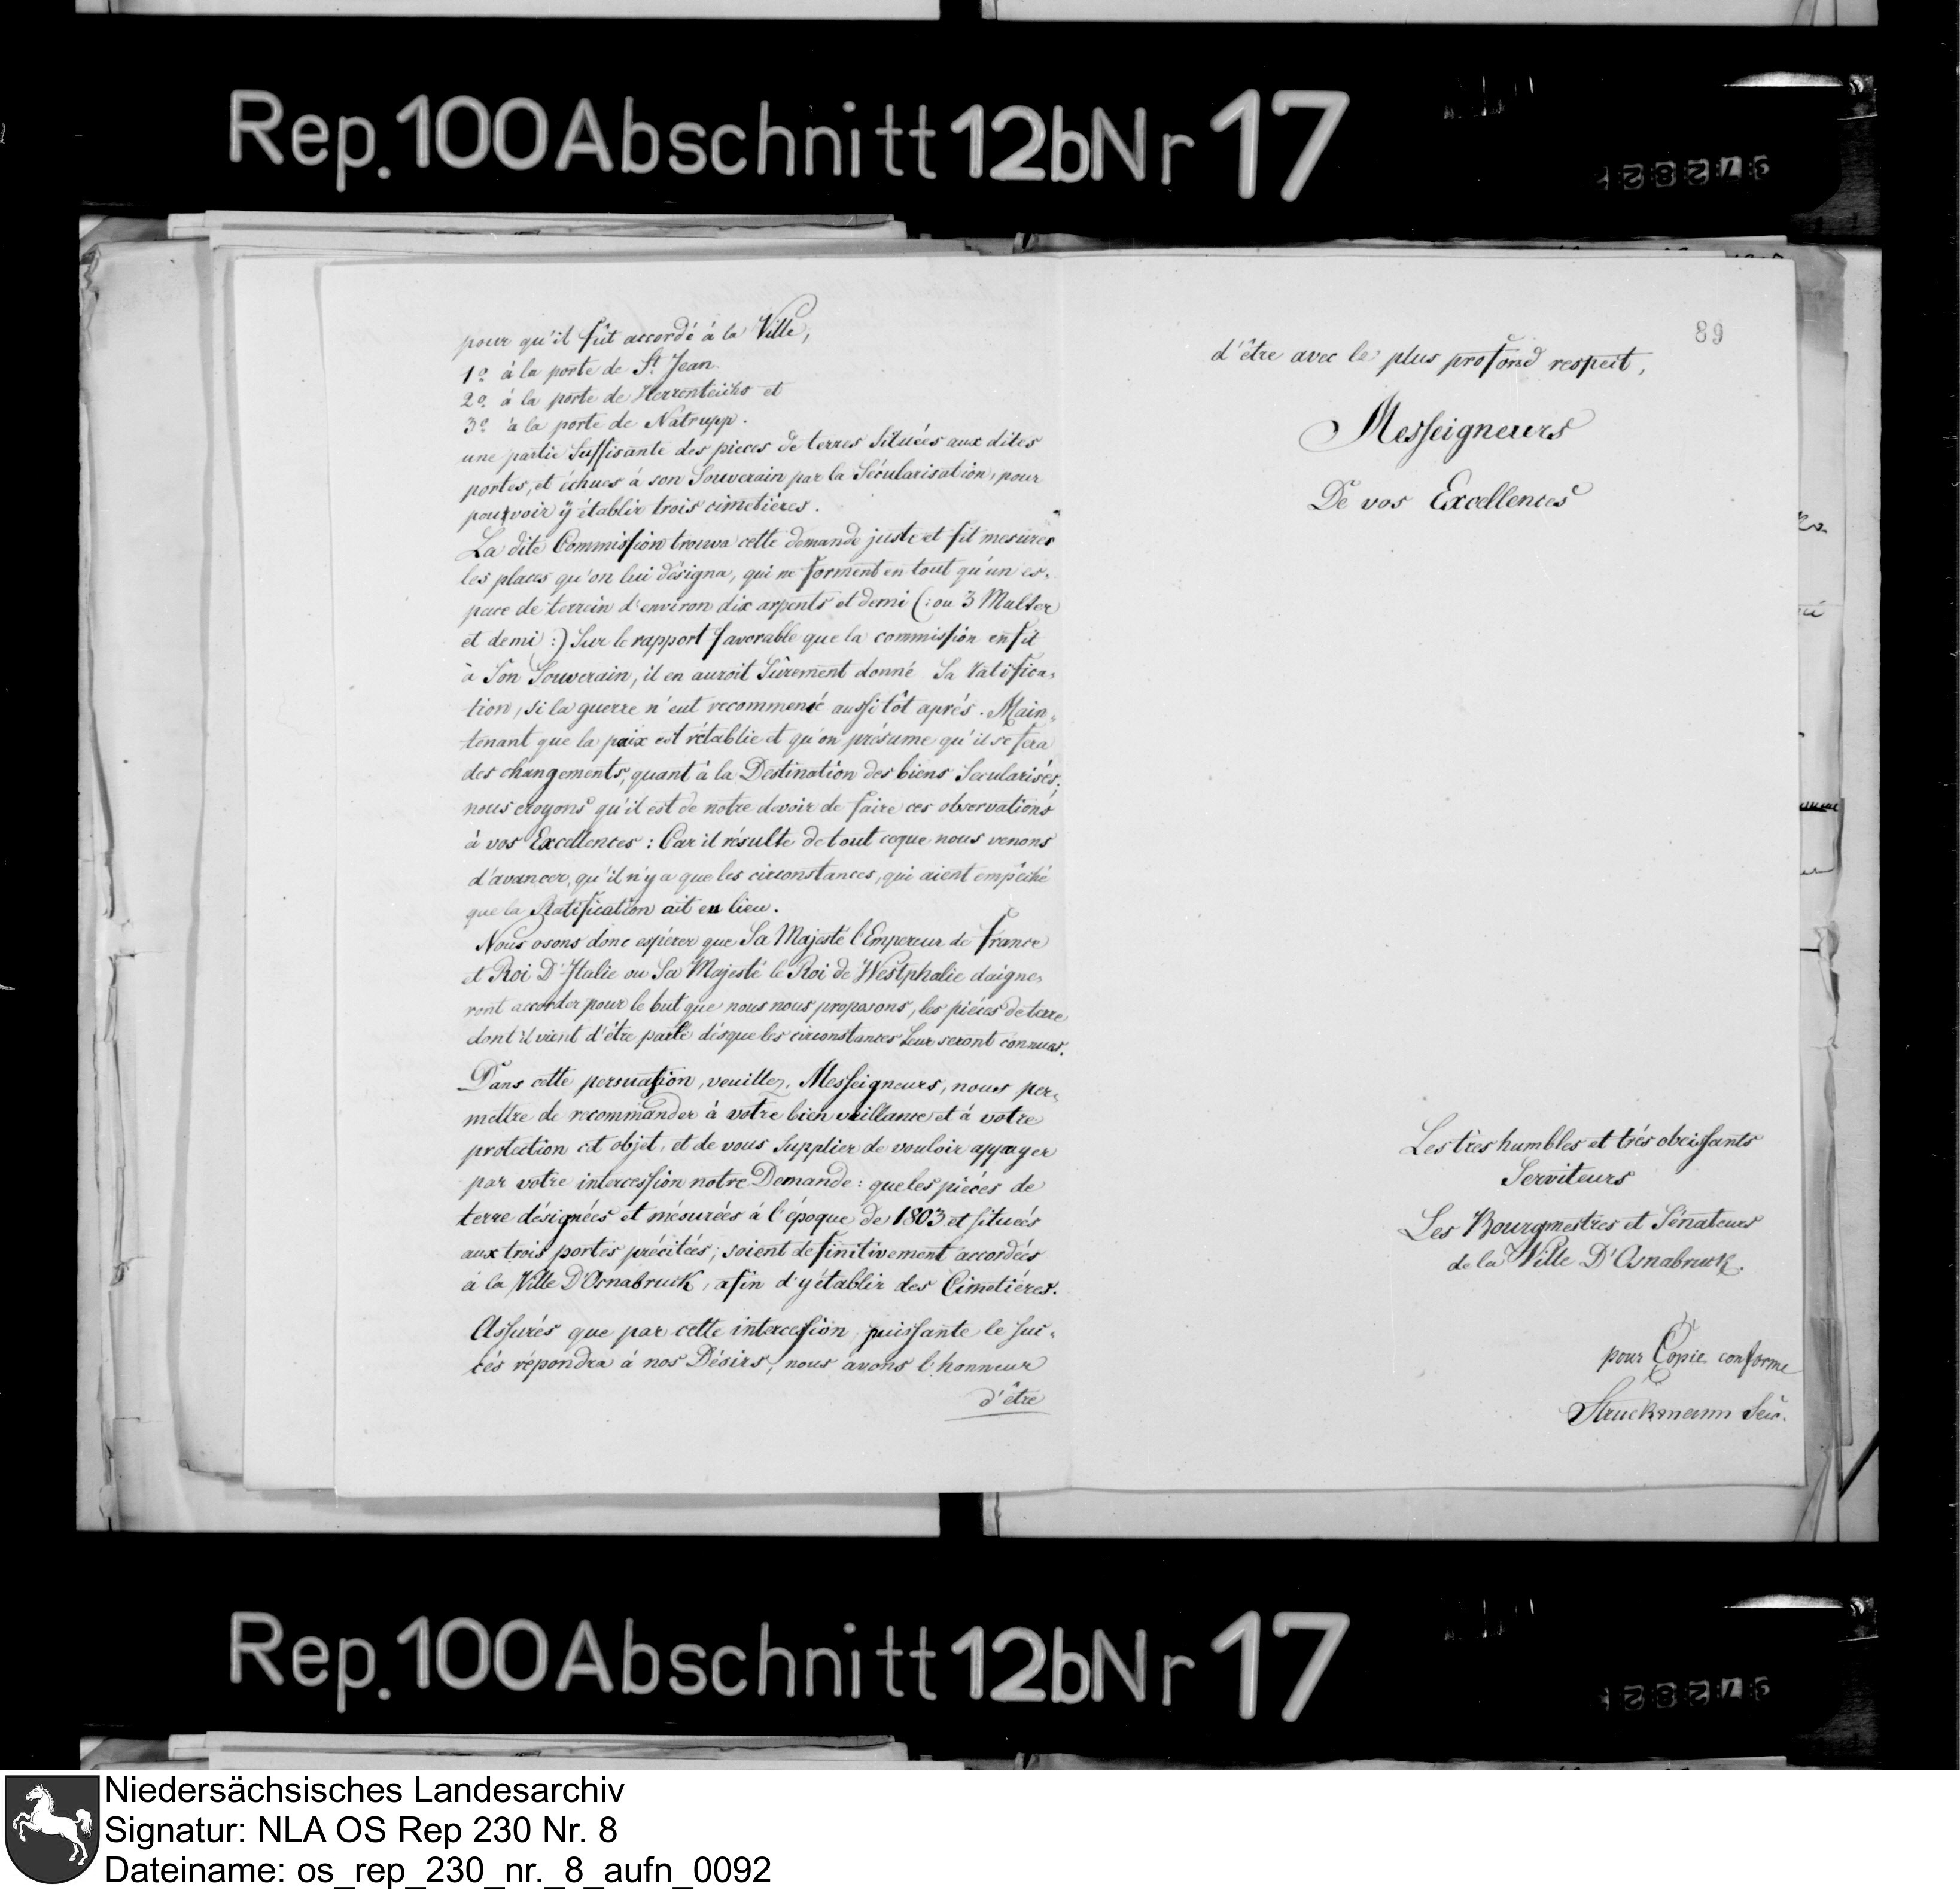 Rep. 100 Abschnitt 12b Nr 17
pour qu'il fût accordé à la Ville,
1º à la porte de St. Jean
2º à la porte de Herrenteichs et
3º à la porte de Natrupp.
une partie Suffisante des pieces de terres Situées aux dites
portes, et échues à son Souverain par la Sécularisation, pour
pouvoir ÿ établir trois cimetiéres.
La dite Commission trouva cette demande juste et fit mesurer
les places qu'on lui désigna, qui ne forment en tout qu'un es-
pace de terrein d'environ dix arpents et demi (: ou 3 Malter
et demi :) Sur le rapport favorable que la commission en fit
à Son Souverain, il en auroit Sûrement donné Sa Ratifica-
tion, si la guerre n'eut recommencé aussi tôt aprés. Main-
tenant que la paix est rétablie et qu'on présume qu'il se fera
des changements, quant à la Destination des biens Secularisés,
nous croyons qu'il est de notre devoir de faire ces observations
à vos Excellences : Car il résulte de tout ceque nous venons
d'avancer, qu'il n'y a que les circonstances, qui aient empêché
que la Ratification ait eu lieu.
Nous osons donc espérer que Sa Majesté l'Empereur de france
et Roi D'Italie ou Sa Majesté le Roi de Westphalie daigne-
ront accorder pour le but que nous nous proposons, les piéces de terre
dont il vient d'être parlé désque les circonstances Leur seront connues.
Dans cette persuasion, veuillez, Messeigneurs, nous per-
mettre de recommander à votre bien veillance et à votre
protection cet objet, et de vous Supplier de vouloir appuyer
par votre intercession notre Demande : que les piéces de
terre désignées et mésurées à l'époque de 1803 et situeés
aux trois portes précitées, soient definitivement accordées
à la Ville D'Osnabruck, afin d'y établir des Cimetiéres.
Assurés que par cette intercession puissante le suc-
cés répondra à nos Désirs, nous avons l'honneur
d'être
89
d'être avec le plus profond respect,
Messeigneurs
De vos Excellences
Les trés humbles et trés obeissants
Serviteurs
Les Bourgmestres et Sénateurs
de la Ville D'Osnabruck.
pour Copie conforme
Struckmann Sec.
Rep. 100 Abschnitt 12b Nr 17
Niedersächsisches Landesarchiv
Signatur: NLA OS Rep 230 Nr. 8
Dateiname: os_rep_230_nr._8_aufn_0092